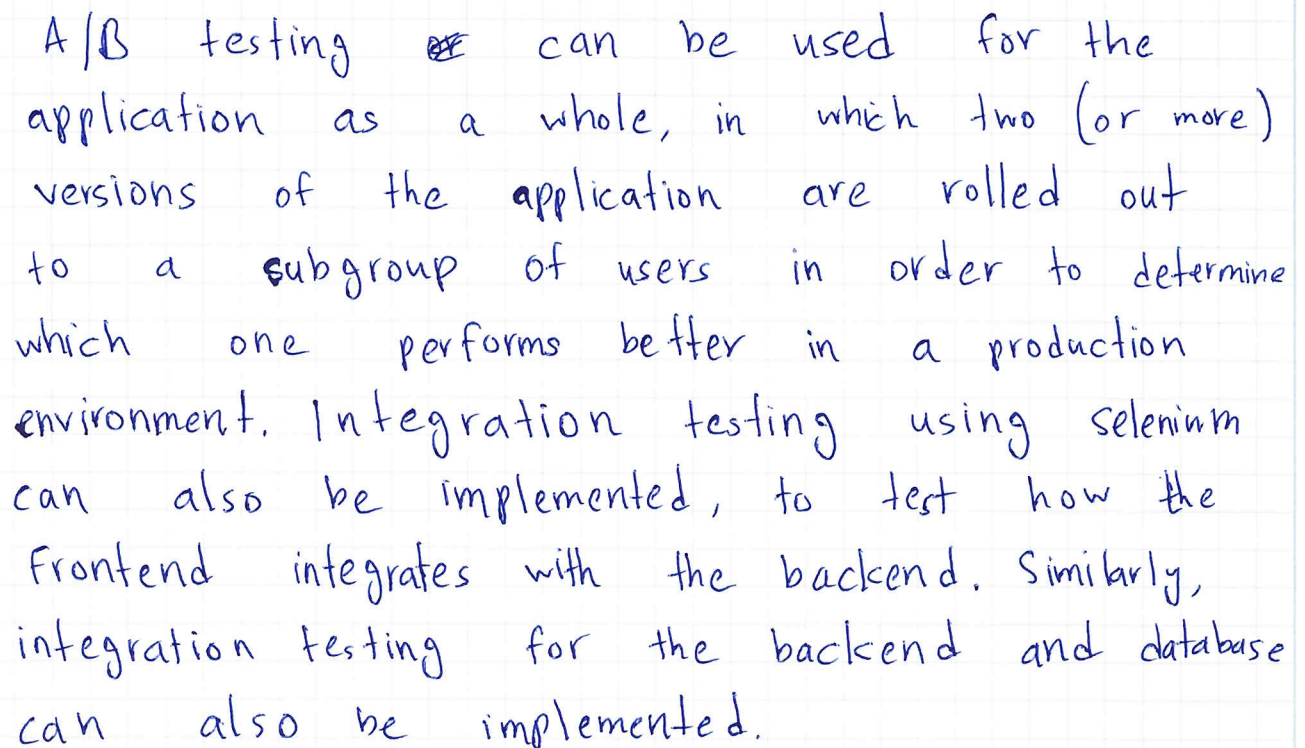 A/B testing can be used for the
application as a whole, in which two (or more)
versions of the application are rolled out
to a subgroup of users in order to determine
which one performs better in a production
environment. Integration testing using selenium
can also be implemented, to test how the
frontend integrates with the backend. Similarly,
integration testing for the backend and database
can also be implemented.